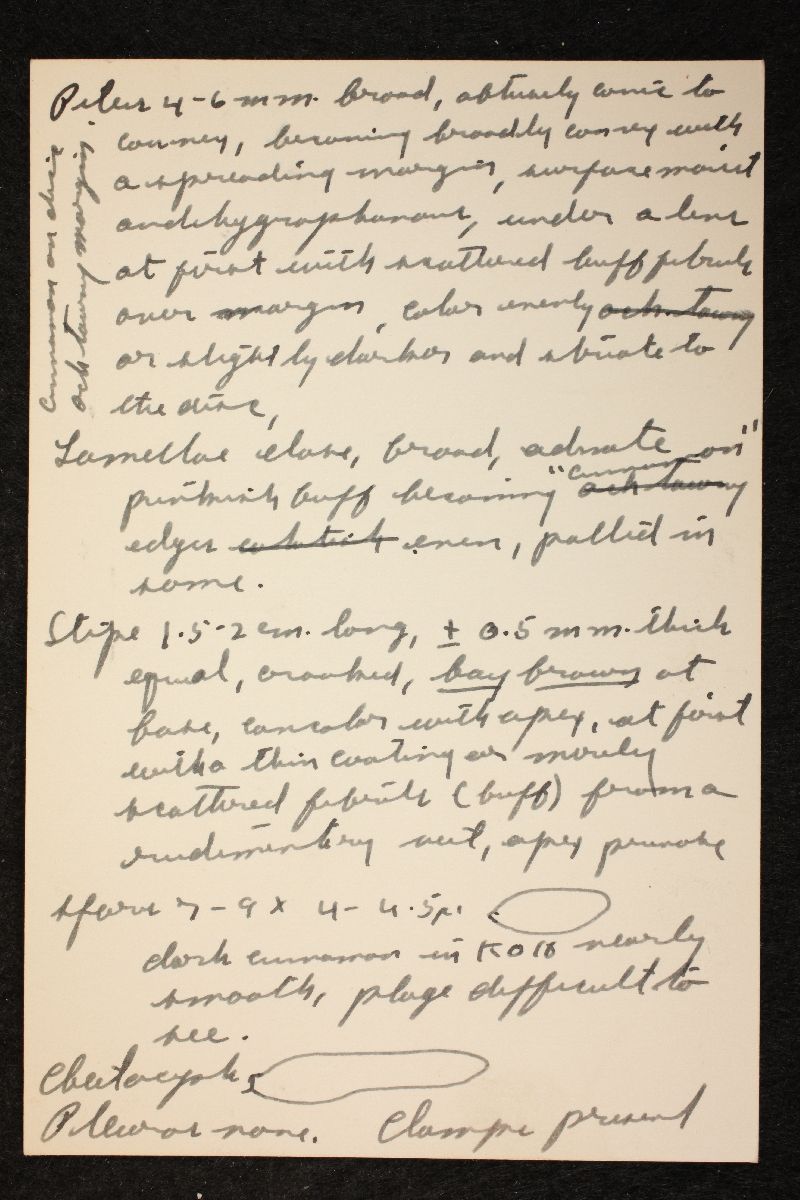 Pileus 4-6 mm. broad, obtusely conic to
convex, becoming broadly convex with
a spreading margin, surface moist
and hygrophanous, under a lens
at first with scattered buff fibrils
over margin, color evenly och-tawny
or slightly darker and striate to
the disc,
cinnamon on disc
och tawny margin
Lamellae close, broad, adnate
pinkish buff becoming "cinnamon" och tawny
edges whitish even, pallid in
some.
Stipe 1.5-2 cm. long, ± 0.5 mm. thick
equal, crooked, bay brown at
base, concolor with apex, at first
with a thin coating or merely
scattered fibrils (buff) from a
rudimentary veil, apex pruinose
spores 7-9 x 4-4.5µ.
dark cinnamon in KOH nearly
smooth, plage difficult to
see.
Cheilocysts
Pleuros none. Clamps present